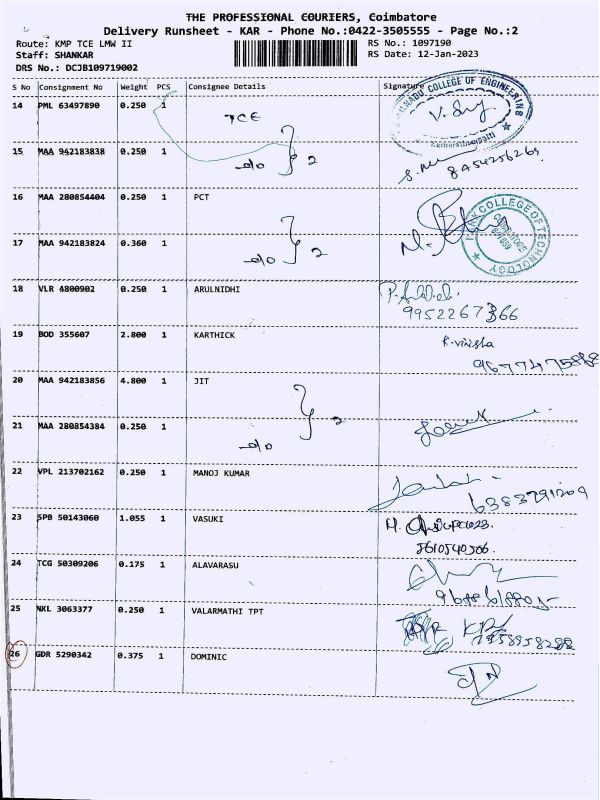 THE PROFESSIONAL COURIERS, Coimbatore
Delivery Runsheet - KAR - Phone No.:0422-3505555 - Page No.:2
Route: KMP TCE LMW II RS No.: 1097190
Staff: SHANKAR RS Date: 12-Jan-2023
DRS No.: DCJB109719002
S No Consignment No Weight PCS Consignee Details Signature
14 PML 63497890 0.250 1 TCE
COLLEGE OF ENGINEERING
15 MAA 942183838 0.250 1 -do 2
8454256269
16 MAA 280854404 0.250 1 PCT
COLLEGE OF TECHNOLOGY
17 MAA 942183824 0.360 1 -do 2
18 VLR 4800902 0.250 1 ARULNIDHI
9952267366
19 BOD 355607 2.800 1 KARTHICK
20 MAA 942183856 4.800 1 JIT
21 MAA 280854384 0.250 1 -do 2
22 VPL 213702162 0.250 1 MANOJ KUMAR
6383791209
23 SPB 50143060 1.055 1 VASUKI
24 TCG 50309206 0.175 1 ALAVARASU
25 NKL 3063377 0.250 1 VALARMATHI TPT
26 GDR 5290342 0.375 1 DOMINIC